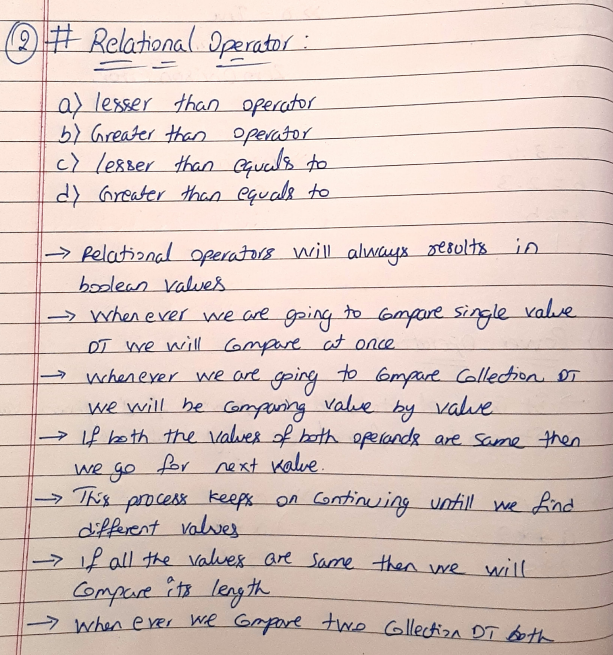 ② # Relational Operator :
a) lesser than operator
b) Greater than operator
c) lesser than equals to
d) Greater than equals to
→ Relational operators will always results in
boolean values
→ When ever we are going to compare single value
DT we will compare at once
→ whenever we are going to compare Collection DT
we will be comparing value by value
→ If both the values of both operands are same then
we go for next value.
→ This process keeps on continuing untill we find
different values
→ if all the values are same then we will
compare its length
→ when ever we compare two Collection DT both